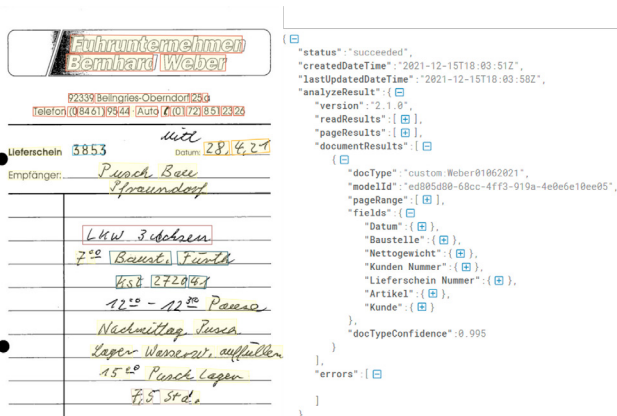 Fuhrunternehmen
Bernhard Weber
92339 Beilngries-Oberndorf 25a
Telefon (08461) 9544 · Auto (0172) 8512326
Mitt
Lieferschein 3853 Datum: 28, 4, 21
Empfänger: Pusch Bau
Pfraundorf
LKW 3 Achsen
7⁰⁰ Baust. Fürth
Kst 272041
12⁰⁰ - 12³⁰ Pause
Nachmittag Pusch
Lager Wasserw. auffüllen
15⁰⁰ Pusch Lager
7,5 Std.
{
"status":"succeeded",
"createdDateTime":"2021-12-15T18:03:51Z",
"lastUpdatedDateTime":"2021-12-15T18:03:58Z",
"analyzeResult":{
"version":"2.1.0",
"readResults":[ ],
"pageResults":[ ],
"documentResults":[
{
"docType":"custom:Weber01062021",
"modelId":"ed805d80-68cc-4ff3-919a-4e0e6e10ee05",
"pageRange":[ ],
"fields":{
"Datum":{ },
"Baustelle":{ },
"Nettogewicht":{ },
"Kunden Nummer":{ },
"Lieferschein Nummer":{ },
"Artikel":{ },
"Kunde":{ }
},
"docTypeConfidence":0.995
}
],
"errors":[
]
}